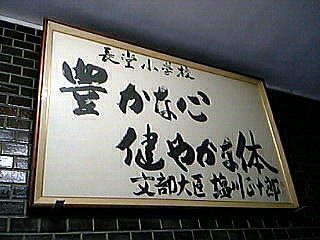 長堂小学校
豊かな心
健やかな体
文部大臣 塩川正十郎